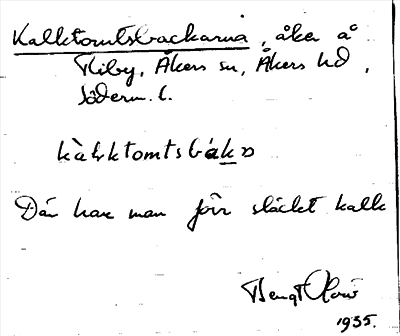 Kalktomtsbackarna, åker å
Kiby, Åkers sn, Åkers hd,
Söderm. l.
kàlktomtsbákɔ
Där har man förr släckt kalk
Bengt
1935.